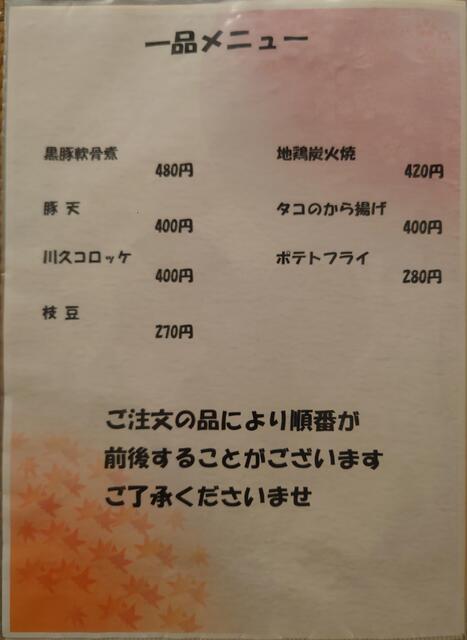 一品メニュー
黒豚軟骨煮
480円
豚天
400円
川久コロッケ
400円
枝豆
270円
地鶏炭火焼
420円
タコのから揚げ
400円
ポテトフライ
280円
ご注文の品により順番が
前後することがございます
ご了承くださいませ